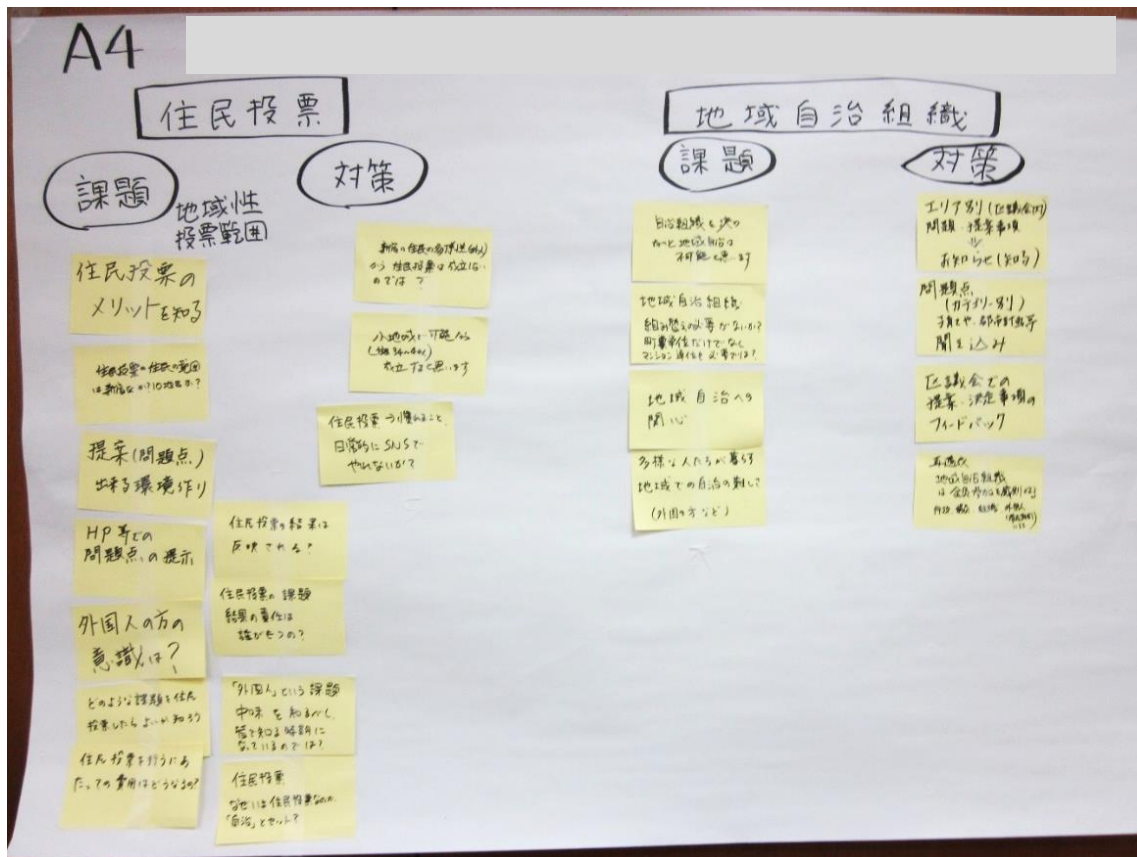 A4
住民投票
課題
地域性
投票範囲
対策
住民投票の
メリットを知る
住民投票の住民の範囲
提案(問題点)
出来る環境作り
HP等での
問題点の提示
外国人の方の
意識は?
どのような課題を住民
投票したらよいか知ろう
住民投票を行うにあ
たっての費用はどうなるの?
住民投票の結果は
反映される?
住民投票の課題
結果の責任は
誰がもつの?
「外国人」という課題
中味を知るべし
皆で知る時期に
なっているのでは?
住民投票
なぜいま住民投票なのか
「自治」とセット?
から住民投票は成立しない
のでは?
成立すると思います
住民投票
日常的にSNSで
やれないか?
地域自治組織
課題
自治組織を
ないと地域自治は
不可能と思います
地域自治組織
組み替えの必要がないか?
町会単位だけでなく
マンション単位も必要では?
地域自治への
関心
多様な人たちが暮らす
地域での自治の難しさ
(外国の方など)
対策
エリア別(区議会だより)
問題・提案事項
お知らせ(知る)
問題点
(カテゴリー別)
子育てや、都市計画等
聞き込み
区議会での
提案・決定事項の
フィードバック
地域自治組織